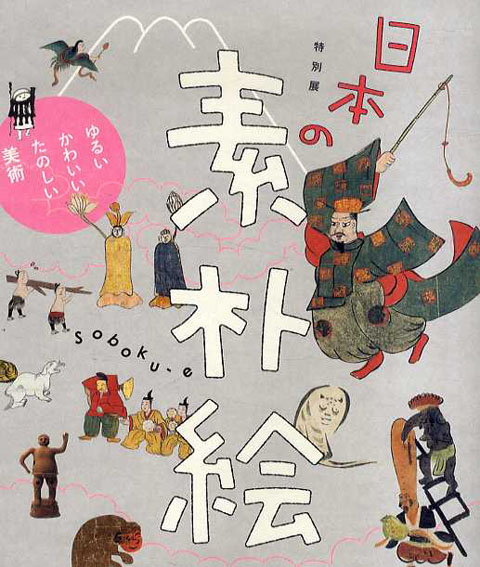 特別展
日本の
素朴絵
soboku-e
ゆるい
かわいい、
たのしい
美術